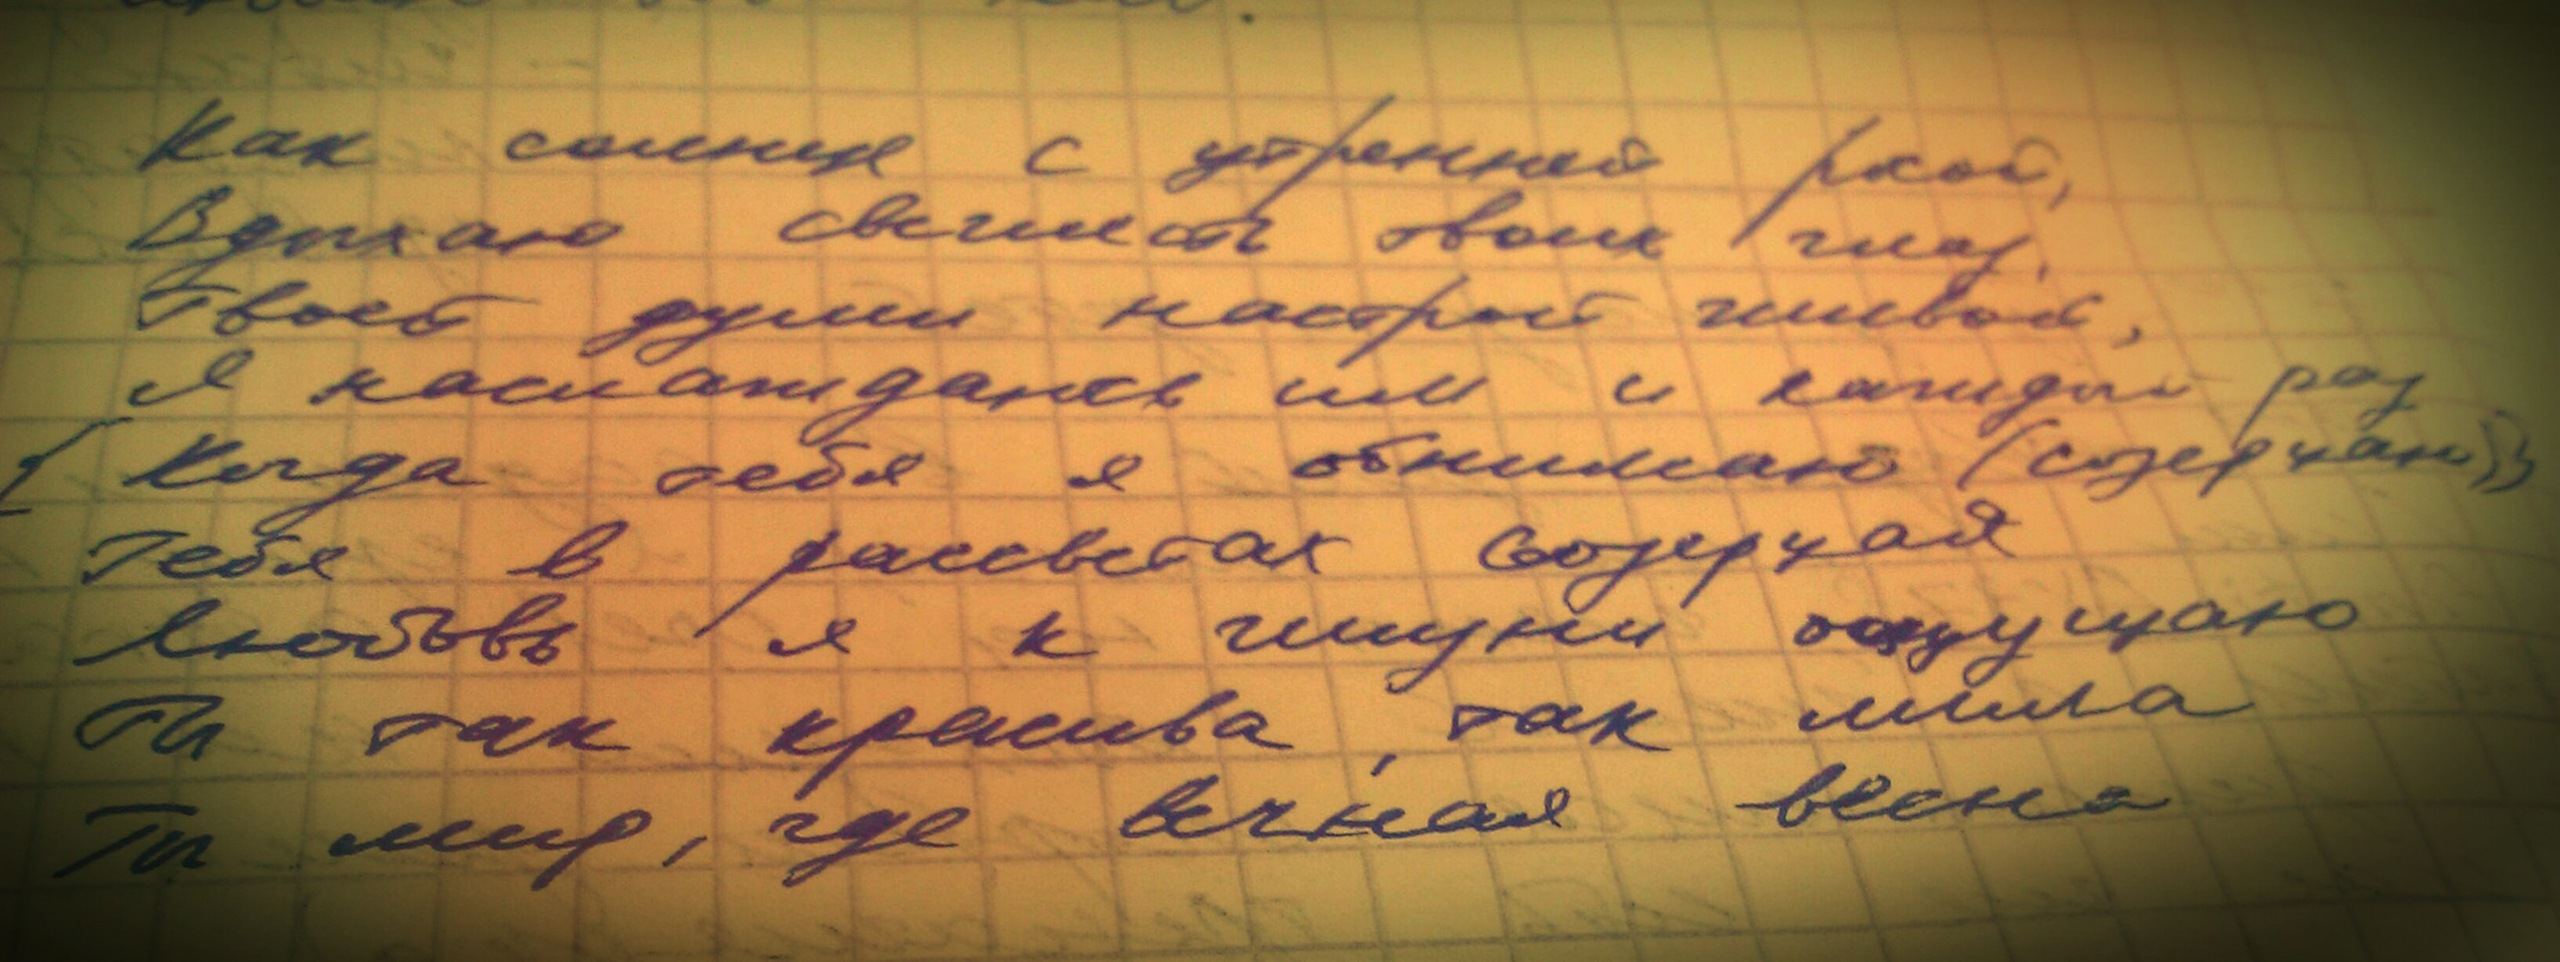 Как солнце с утренней рекой,
Вдыхаю свежесть твоих глаз,
Твоей души настрой живой,
Я наслаждаюсь им и каждый раз
(Когда тебя я обнимаю (созерцаю))
Тебя в рассветах созерцая
Любовь я к жизни ощущаю
Ты так красива, так мила
Ты мир, где вечная весна